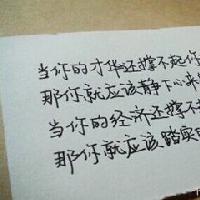 当你的才华还撑不起你
那你就应该静下心来
当你的经济还撑不
那你就应该踏实的